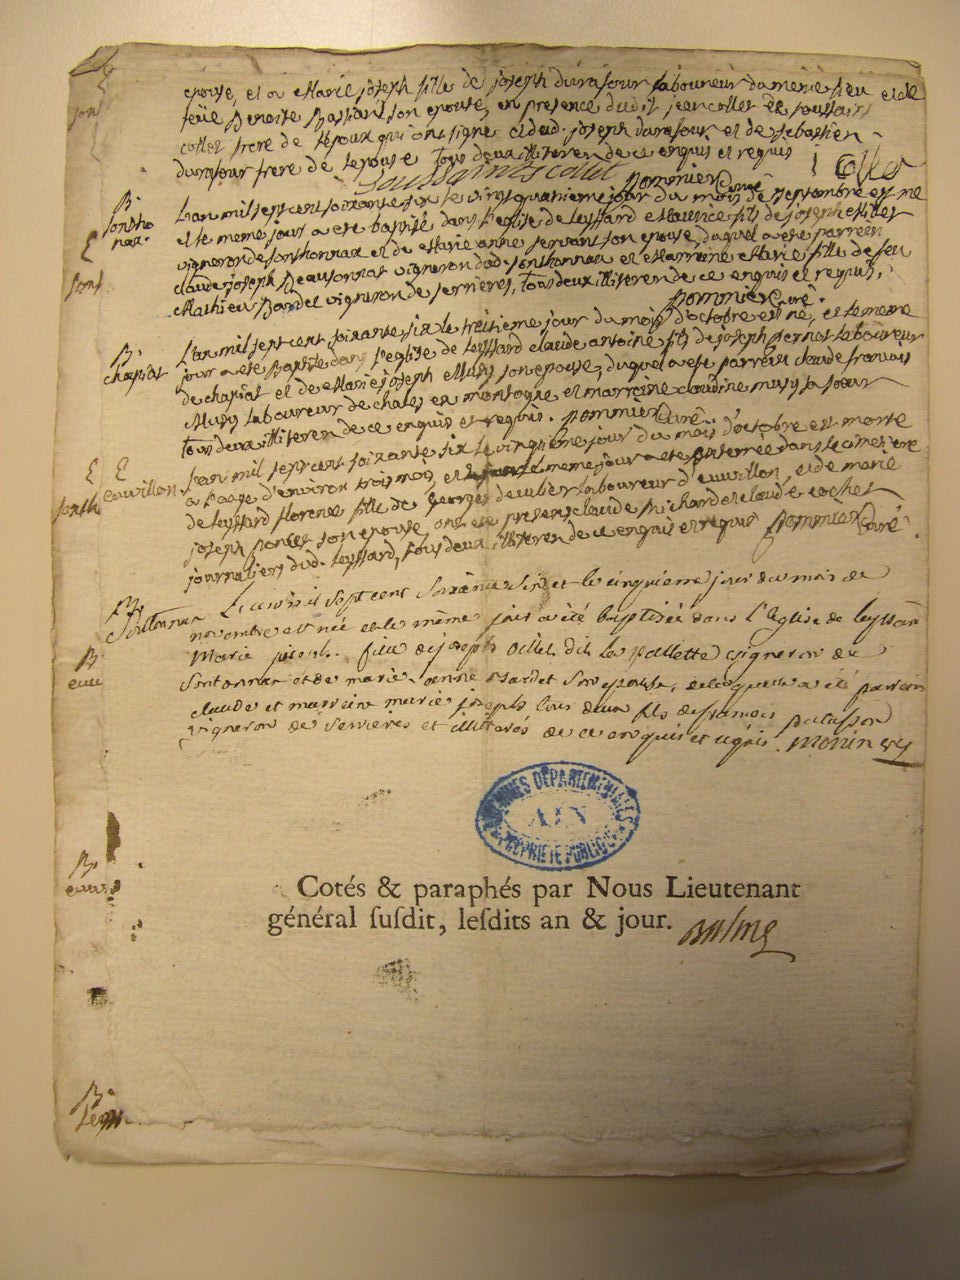 epouse, et a Marie joseph fille de joseph durafour laboureur du meme lieu et de
feüe Benoite Bastian son epouse, en presence dudit jean collet et toussaint
collet frere de l'epoux qui ont signé et dud. joseph durafour et de sebastien
durafour frere de l'epouse tous deux illiteren de ce enquis et requis j Collet
Toussaints collet pommier Curé
B. sontho nax.
L'an mil sept cent soixante six le vingt quatrieme jour du mois de septembre est né
et le meme jour a eté baptisé dans l'eglise de leyssard Maurice fils de joseph
vigneron de sonthonnax et de Marie anne servant son epouse, duquel a eté parrein
claude joseph Beausonnat vigneron dud. sonthonnax et Marraine Marie fille de feu
Mathieu Bardet vigneron de serrieres, tous deux illiteren de ce enquis et requis.
pommier curé.
B. chapiat
L'an mil sept cent soixante six le treisieme jour du mois d'octobre est né, et le meme
jour a eté Baptisé dans l'eglise de leyssard claude antoine fils de joseph pernot laboureur
de chapiat et de Marie joseph Musy son epouse, duquel a eté parrein claude francois
Musy laboureur de chales en montagne, et marraine claudine musy sa soeur
tous deux illiteren de ce enquis et requis. pommier Curé.
E euvillon
L'an mil sept cent soixante six le vingtieme jour du mois d'octobre est morte
a l'aage d'environ trois mois, et le meme jour a eté enterrée dans le cimetiere
de leyssard florence fille de georges laboureur d'euvillon, et de marie
joseph poncet son epouse, ont eté presens claude Michard et claude cochet
journaliers dud. leyssard, tous deux illiteren de ce enquis et requis pommier Curé
B. Sontonnax
L'an mil sept cent soixante six et le cinquieme jour du mois de
novembre est née et le même jour a été baptizée dans l'Eglise de leyssard
Marie joseph fille de joseph dit la vigneron de
Sontonnax et de marie anne Bardet son epouse, de laquelle a été parrein
claude et marreine marie joseph tous deux fils de francois
vigneron de serrieres et illiterés de ce enquis et requis. Monin
B. euv
B. euv
B. leyss
ARCHIVES DÉPARTEMENTALES
AIN
PROPRIÉTÉ PUBLIQUE
Cotés & paraphés par Nous Lieutenant
général ſuſdit, leſdits an & jour. Balme